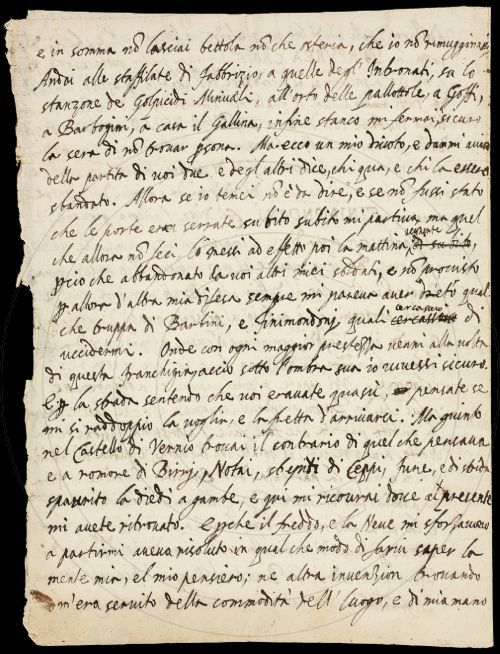 e in somma nõ lasciai bettola nõ che osteria, che io nõ rimuggina
Andai alle staffilate di Fabbrizio, a quelle degl' Intronati, su lo
stanzone de Golpicidi Minuali, all'orto delle pallottole, a Goffi,
a Barbogini, a casa il Gallina, infine stanco mi fermai, sicuro
la sera di nõ trovar psona. Ma ecco un mio divoto, e dammi
della partita di voi due, e degl altri dice, chi qua, e chi la essere
sbandato. Allora se io temei nõ è da dire, e se nõ fussi stato
che le porte eran serrate subito subito mi partiva, ma quel
che allora nõ feci, lo messi ad effetto poi la mattina vegnente,
pcio che abbandonato da voi altri miei soldati, e nõ provisto
p allora d'altra mia difesa sempre mi pareva aver drieto qual
che truppa di Bartini, e Finimondoni, quali cercassero di
uccidermi. Onde con ogni maggior prestezza venni alla volta
di questa franchigia, acciò sotto l'ombra sua io vivessi sicuro.
E p la strada sentendo che voi eravate quassù, pensate se
mi si raddoppiò la voglia, e la fretta d'arrivarci. Ma giunto
nel Castello di Vernio trovai il contrario di quel che pensava
e a romore di Birri, Notai, strepiti di Ceppi, fune, e di sbirri
spaurito la diedi a gambe, e qui mi ricovrai dove al presente
mi avete ritrovato. E pche il freddo, e la neve mi sforzavano
a partirmi aveva risoluto in qualche modo di farvi saper la
mente mia, el mio pensiero; ne altra invenzion trovando
m'era servito della commodità dell' luogo, e di mia mano